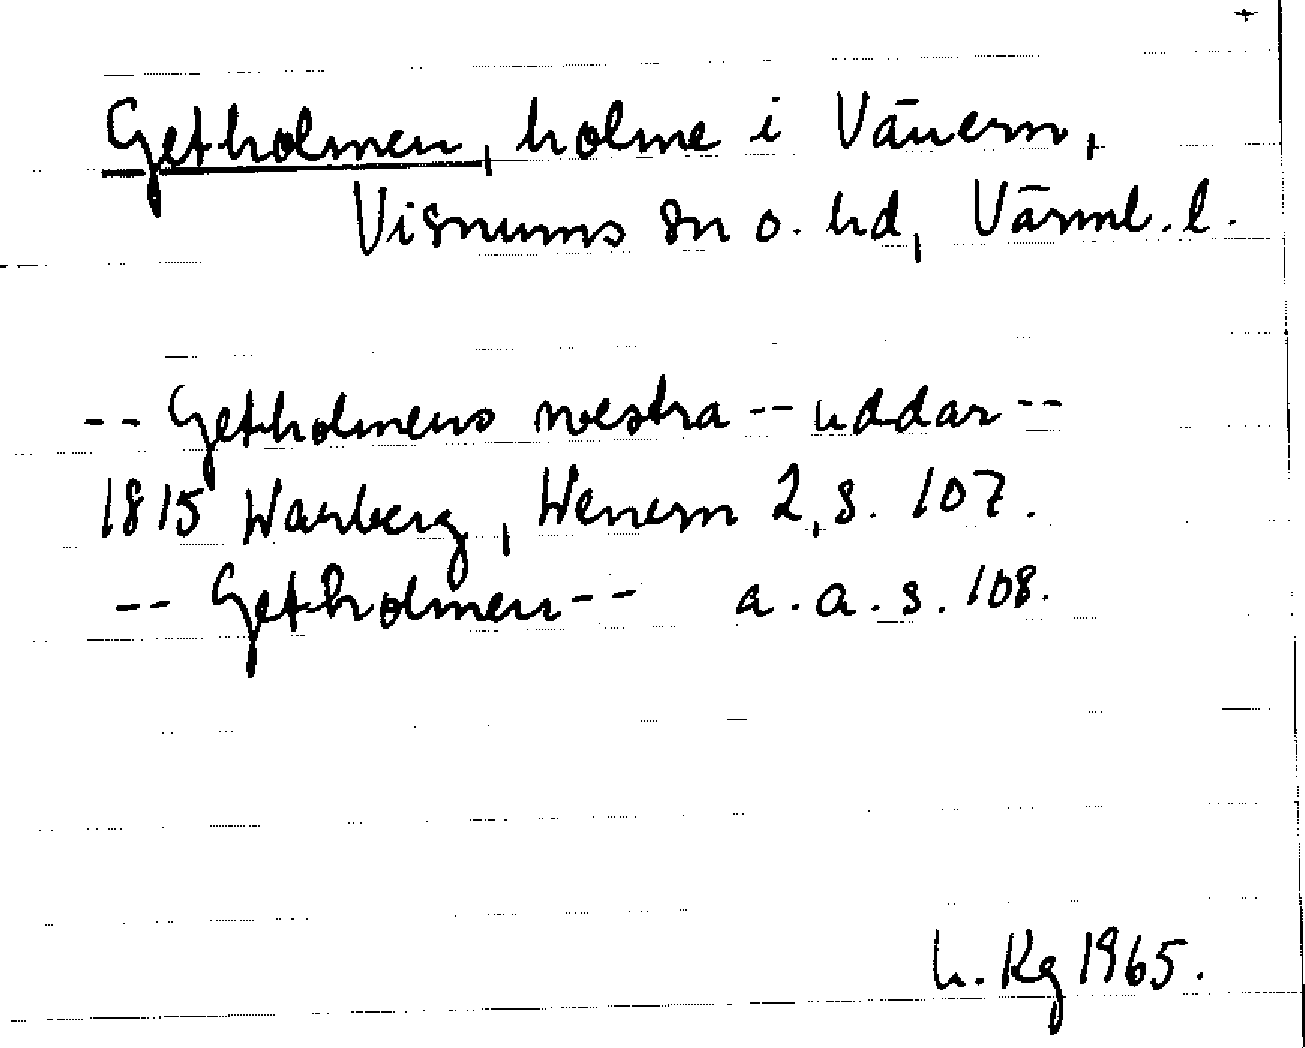 Getholmen, holme i Vänern,
Visnums sn o. hd, Värml. l.
-- Getholmens westra -- uddar --
1815 Warberg, Wenern 2, s. 107.
-- Getholmen -- a.a.s. 108.
h. Kg 1965.